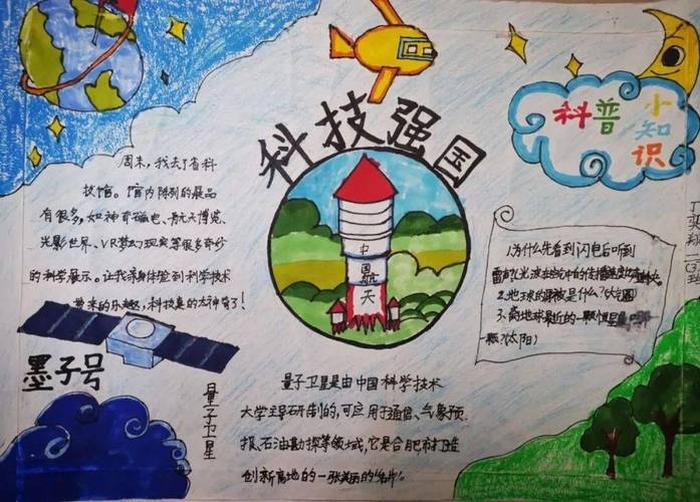 科技强国
科普小知识
周末,我去了省科
技馆。馆内陈列的展品
有很多,如神奇磁电、航天博览、
光影世界、VR梦幻现实等很多奇妙
的科学展示。让我亲身体验到科学技术
带来的乐趣,科技真的太神奇了!
中国航天
1.为什么先看到闪电后听到
雷声?(光波在空气中的传播速度比声
2.地球的
是什么?(大气圈)
3.离地球最近的一颗恒星
(太阳)
墨子号
量子卫星
量子卫星是由中国科学技术
大学主导研制的,可应用于通信、气象预
报、石油勘探等领域,它是合肥市打造
创新高地的一张美丽的"名片"。